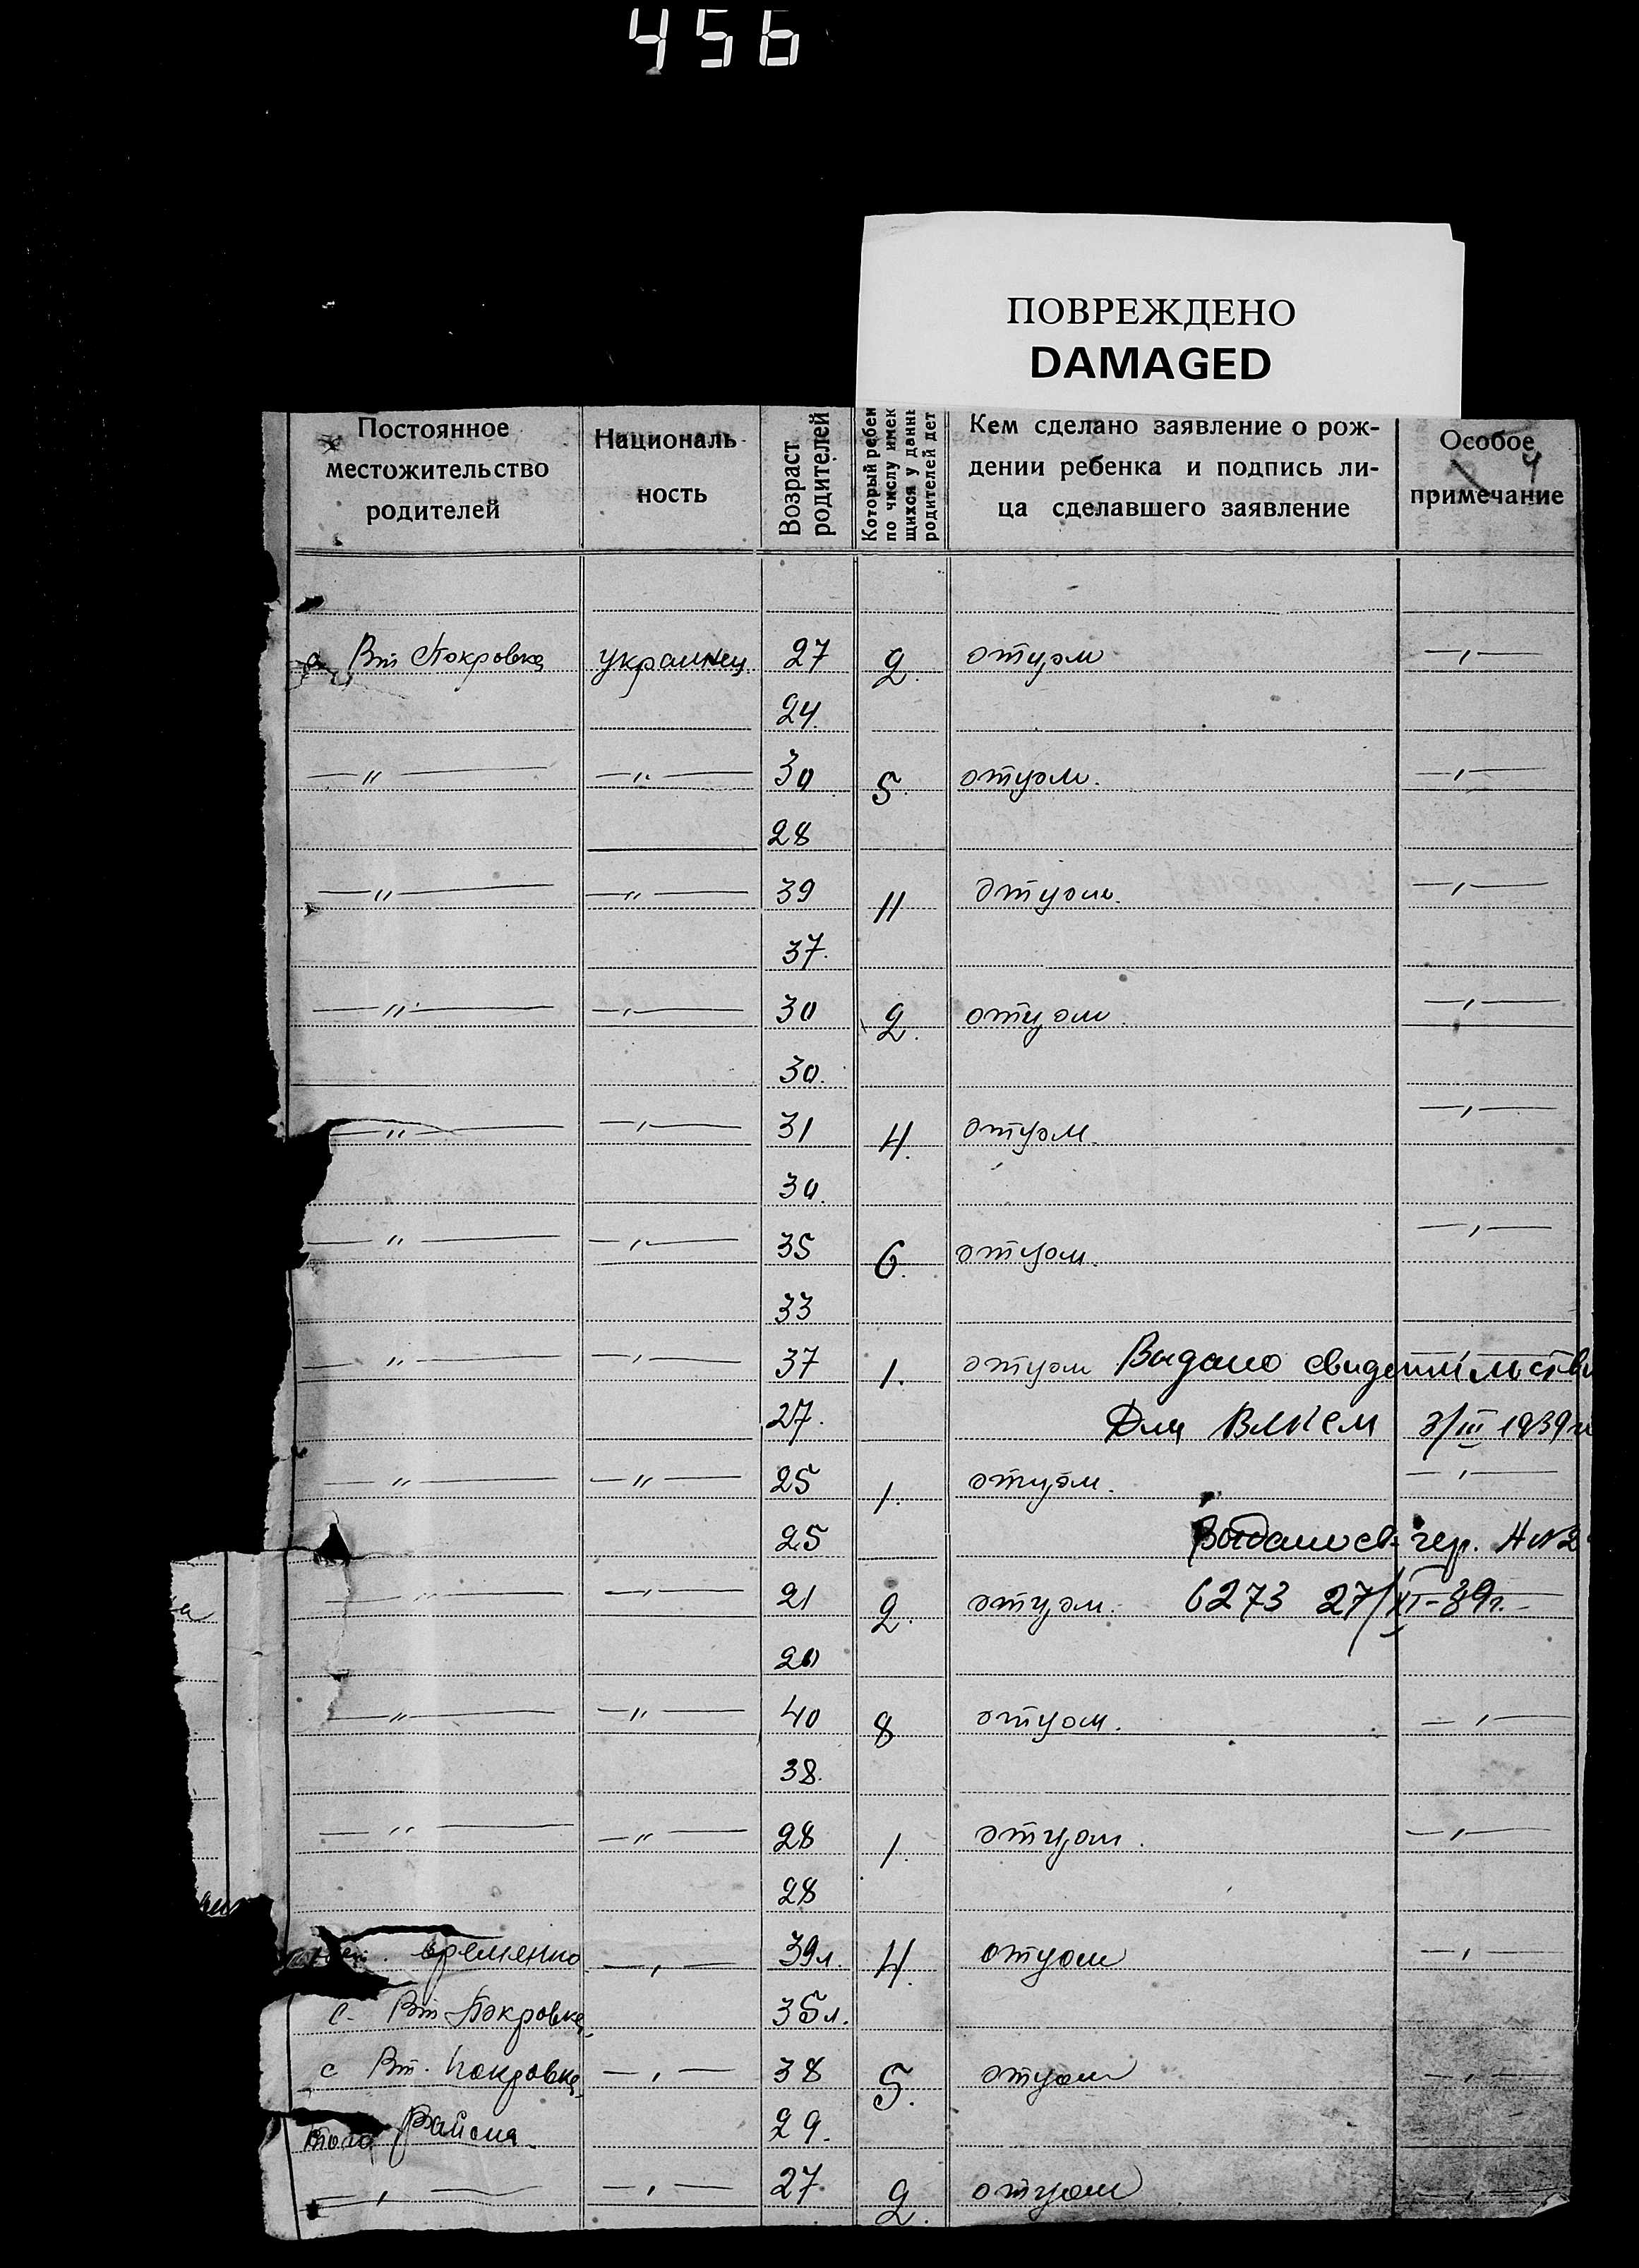 456
ПОВРЕЖДЕНО
DAMAGED
Постоянное местожительство родителей
Националь ность
Возраст родителей
Который ребен по числу имек щихся у данны родителей дет
Кем сделано заявление о рож-
дении ребенка и подпись ли-
ца сделавшего заявление
Особое примечание
4
с Вт Покровка украинец 27 2 отцом —,—
24.
—„— —„— 30 5. отцом. —,—
28
—„— —„— 39 11 отцом. —,—
37.
—„— —,— 30 2. отцом. —,—
30.
—„— —,— 31 4. отцом. —,—
30.
—„— —,— 35 6. отцом. —,—
33
—„— —,— 37 1. отцом Выдано свидетельство
27. Для ВЛКСМ 3/III 1939г
—„— —„— 25 1. отцом. —,—
25 Выдано св.
—„— —,— 21 2. отцом. 6273 27/XI-39г.
20
—„— —„— 40 8 отцом. —,—
38.
—„— —„— 28 1. отцом. —,—
28
временно —,— 39л. 4. отцом —,—
с. Вт-Покровка 35л.
с Вт. Покровка —,— 38 5. отцом —,—
Района 29.
—,— —,— 27 2. отцом —,—